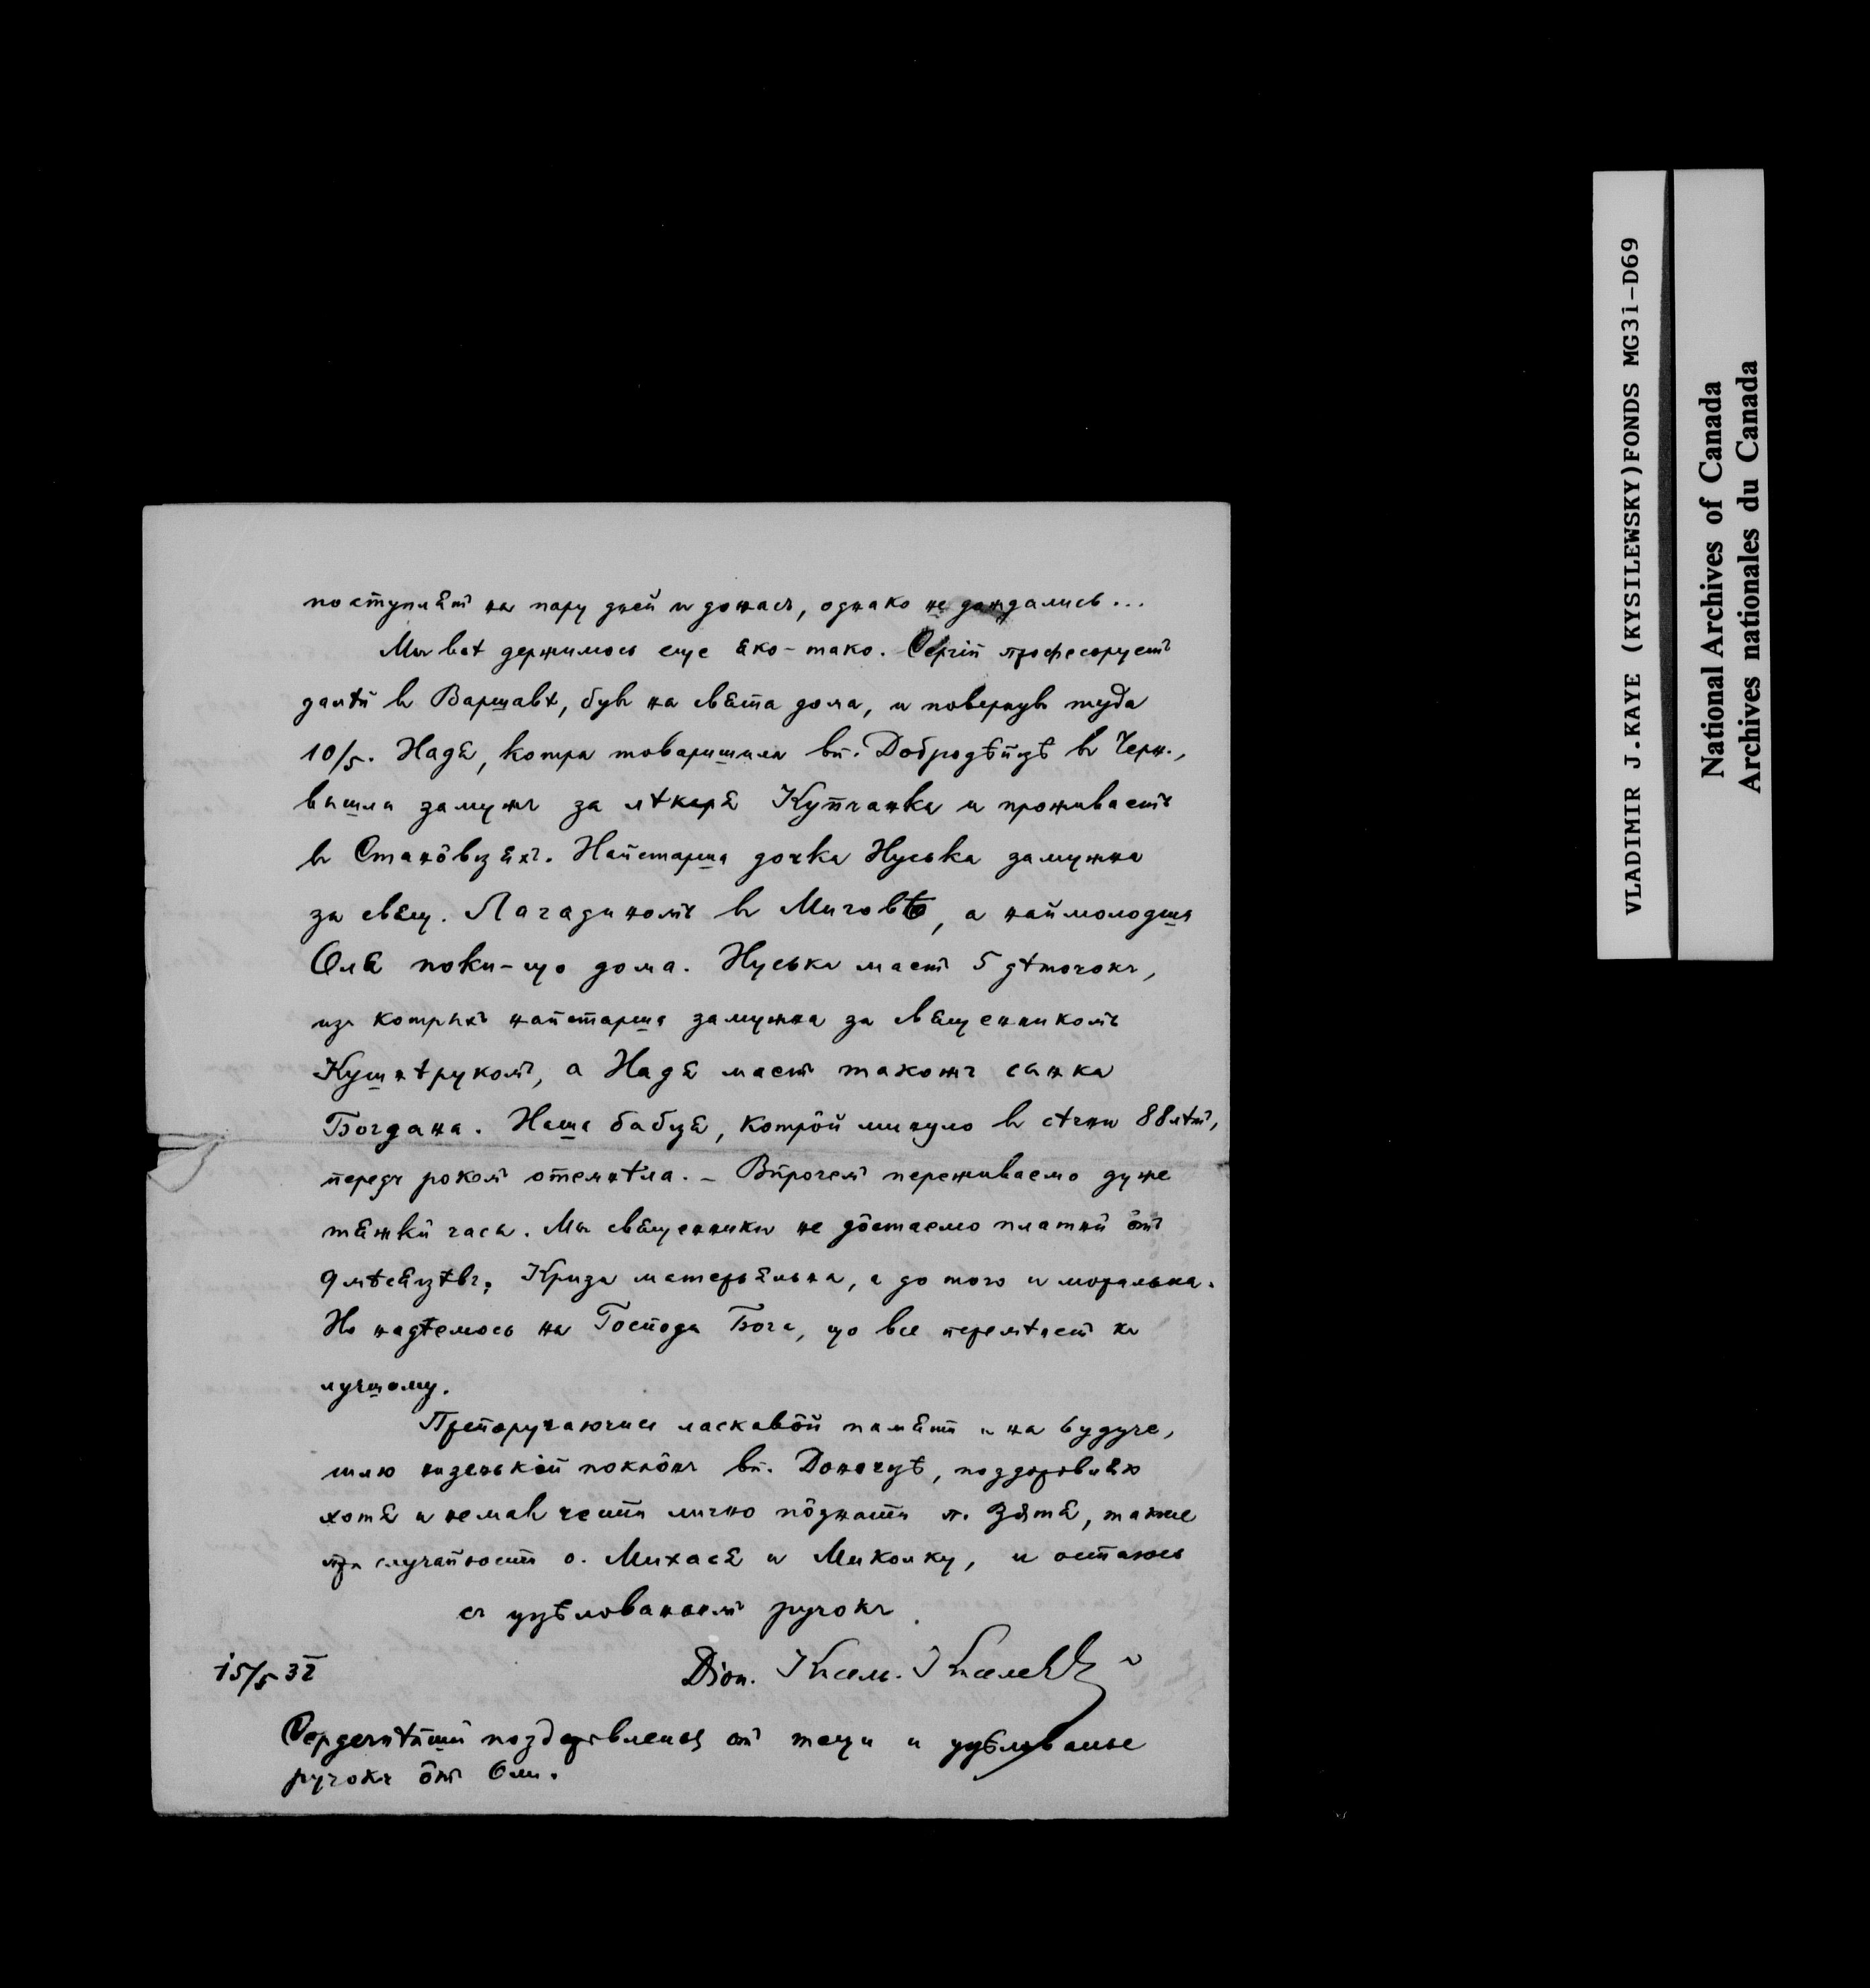 поступлять на пару дней и до насъ, однако не дождались...
Мы всѣ держимось еще яко-тако. Сергій професоруетъ
далѣй въ Варшавѣ, бувъ на свята дома, и повернувъ туда
10/5. Надя, котра товаришила вп. Добродѣйцѣ въ Черн.,
вышла замужъ за лѣкаря Купчанка и проживаетъ
въ Становцяхъ. Найстарша дочка Нуська замужна
за свящ. Лагадиномъ въ Миговѣ, а наймолодша
Оля поки-що дома. Нуська мает 5 дѣточокъ,
изъ котрыхъ найстарша замужна за священникомъ
Кушнѣруком, а Надя мает такожъ сынка
Богдана. Наша бабця, котрôй минуло въ сѣчни 88 лѣт,
передъ рокомъ отемнѣла. - Впрочемъ переживаемо дуже
тяжкй часы. Мы священники не дôстаемо платнй ôтъ
9 мѣсяцѣвъ. Криза матеріяльна, а до того и моральна.
Но надѣемось на Господа Бога, що все перемѣнит ся къ
лучшому.
Препоручаючись ласкавôй памяти и на будуче,
шлю низенькій поклôнъ вп. Донечцѣ, поздоровляю
хотя и не мавъ чести лично пôзнати п. Зятя, также
при случайности о. Михася и Миколку, и остаюсь
съ уцѣлованнямъ ручокъ
15/5 32
Dion. Кисел. Киселевскій
Сердечнѣйшй поздоровленья от тещи и уцѣлованье
ручокъ ôт Оли.
VLADIMIR J.KAYE (KYSILEWSKY)FONDS MG31-D69
National Archives of Canada
Archives nationales du Canada